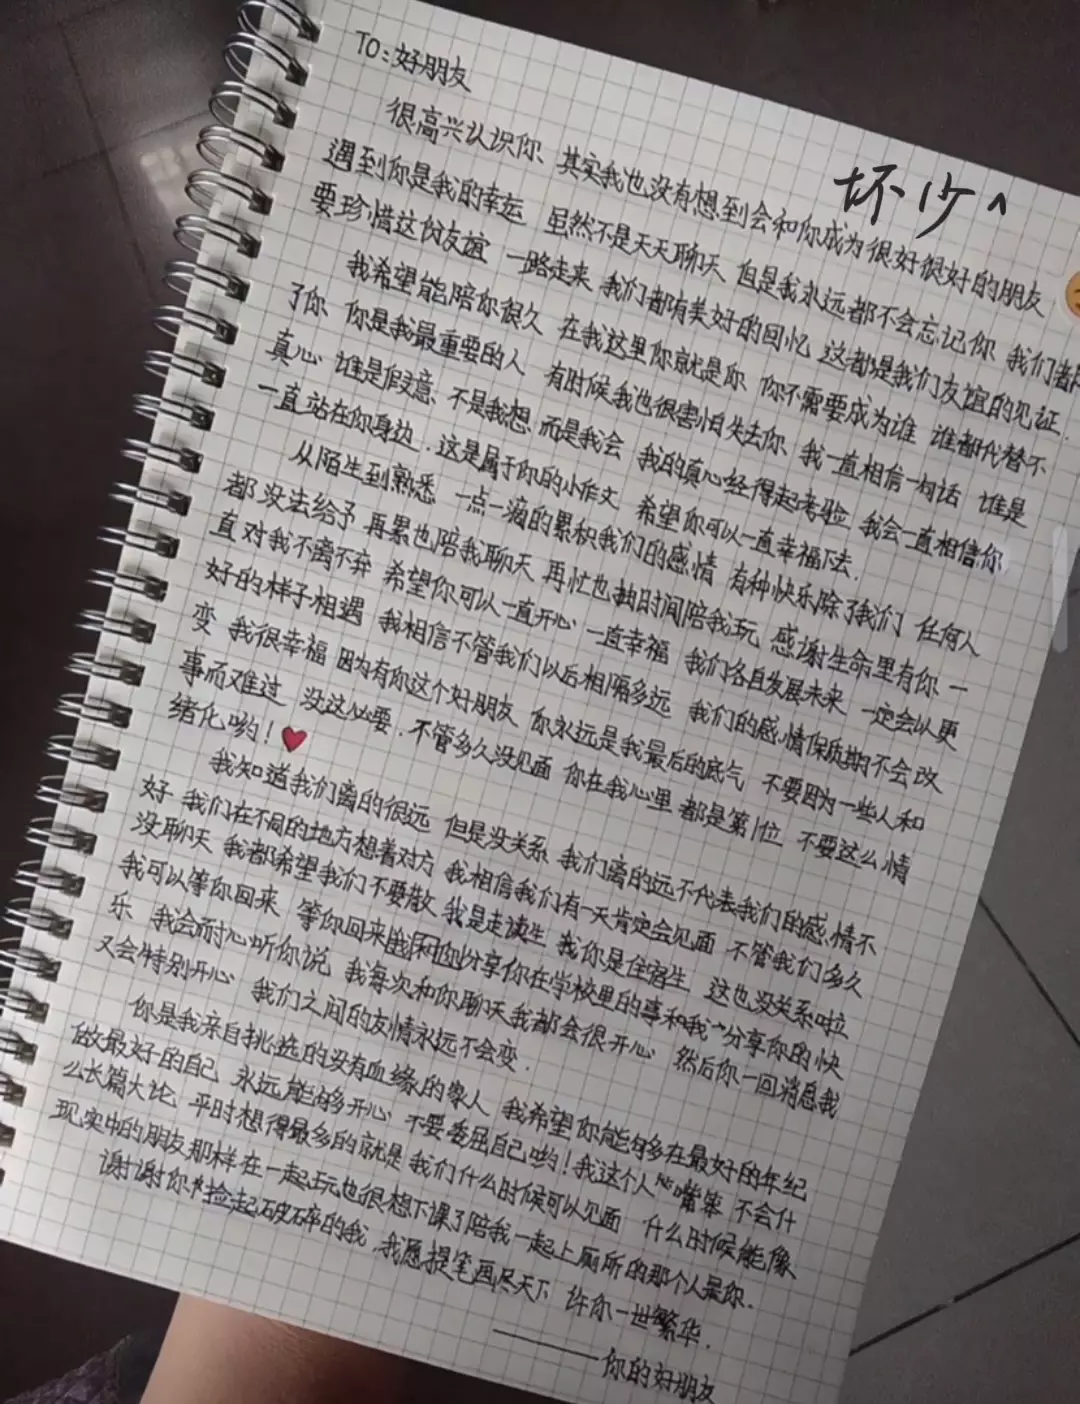 TO:好朋友
坏少^
很高兴认识你、其实我也没有想到会和你成为很好很好的朋友
遇到你是我的幸运 虽然不是天天聊天 但是我永远都不会忘记你 我们都
要珍惜这份友谊 一路走来 我们都有美好的回忆 这都是我们友谊的见证.
我希望能陪你很久 在我这里你就是你 你不需要成为谁 谁都代替不
了你 你是我最重要的人 有时候我也很害怕失去你 我一直相信一句话 谁是
真心 谁是假意、不是我想 而是我会 我的真心经得起考验 我会一直相信你
一直站在你身边.这是属于你的小作文 希望你可以一直幸福下去.
从陌生到熟悉 一点一滴的累积我们的感情 有种快乐除了我们 任何人
都没法给予 再累也陪我聊天 再忙也抽时间陪我玩 感谢生命里有你 一
直对我不离不弃 希望你可以一直开心 一直幸福 我们各自发展未来 一定会以更
好的样子相遇 我相信不管我们以后相隔多远 我们的感情保质期不会改
变 我很幸福 因为有你这个好朋友 你永远是我最后的底气 不要因为一些人和
事而难过 没这必要.不管多久没见面 你在我心里 都是第1位 不要这么情
绪化哟!❤
我知道我们离的很远 但是没关系 我们离的远不代表我们的感情不
好 我们在不同的地方想着对方 我相信我们有一天肯定会见面 不管我们多久
没聊天 我都希望我们不要散 我是走读生 我你是住宿生 这也没关系啦
我可以等你回来 等你回来 分享你在学校里的事和我分享你的快
乐 我会耐心听你说 我每次和你聊天我都会很开心 然后你一回消息我
又会特别开心 我们之间的友情永远不会变.
你是我亲自挑选的没有血缘的家人 我希望你能够多在最好的年纪
做最好的自己 永远能够开心 不要委屈自己哟!我这个人嘴笨 不会什
么长篇大论 平时想得最多的就是 我们什么时候可以见面 什么时候能像
现实中的朋友那样在一起玩也很想下课了陪我一起上厕所的那个人是你.
谢谢你捡起破碎的我.我愿提笔画尽天下 许你一世繁华.
———你的好朋友